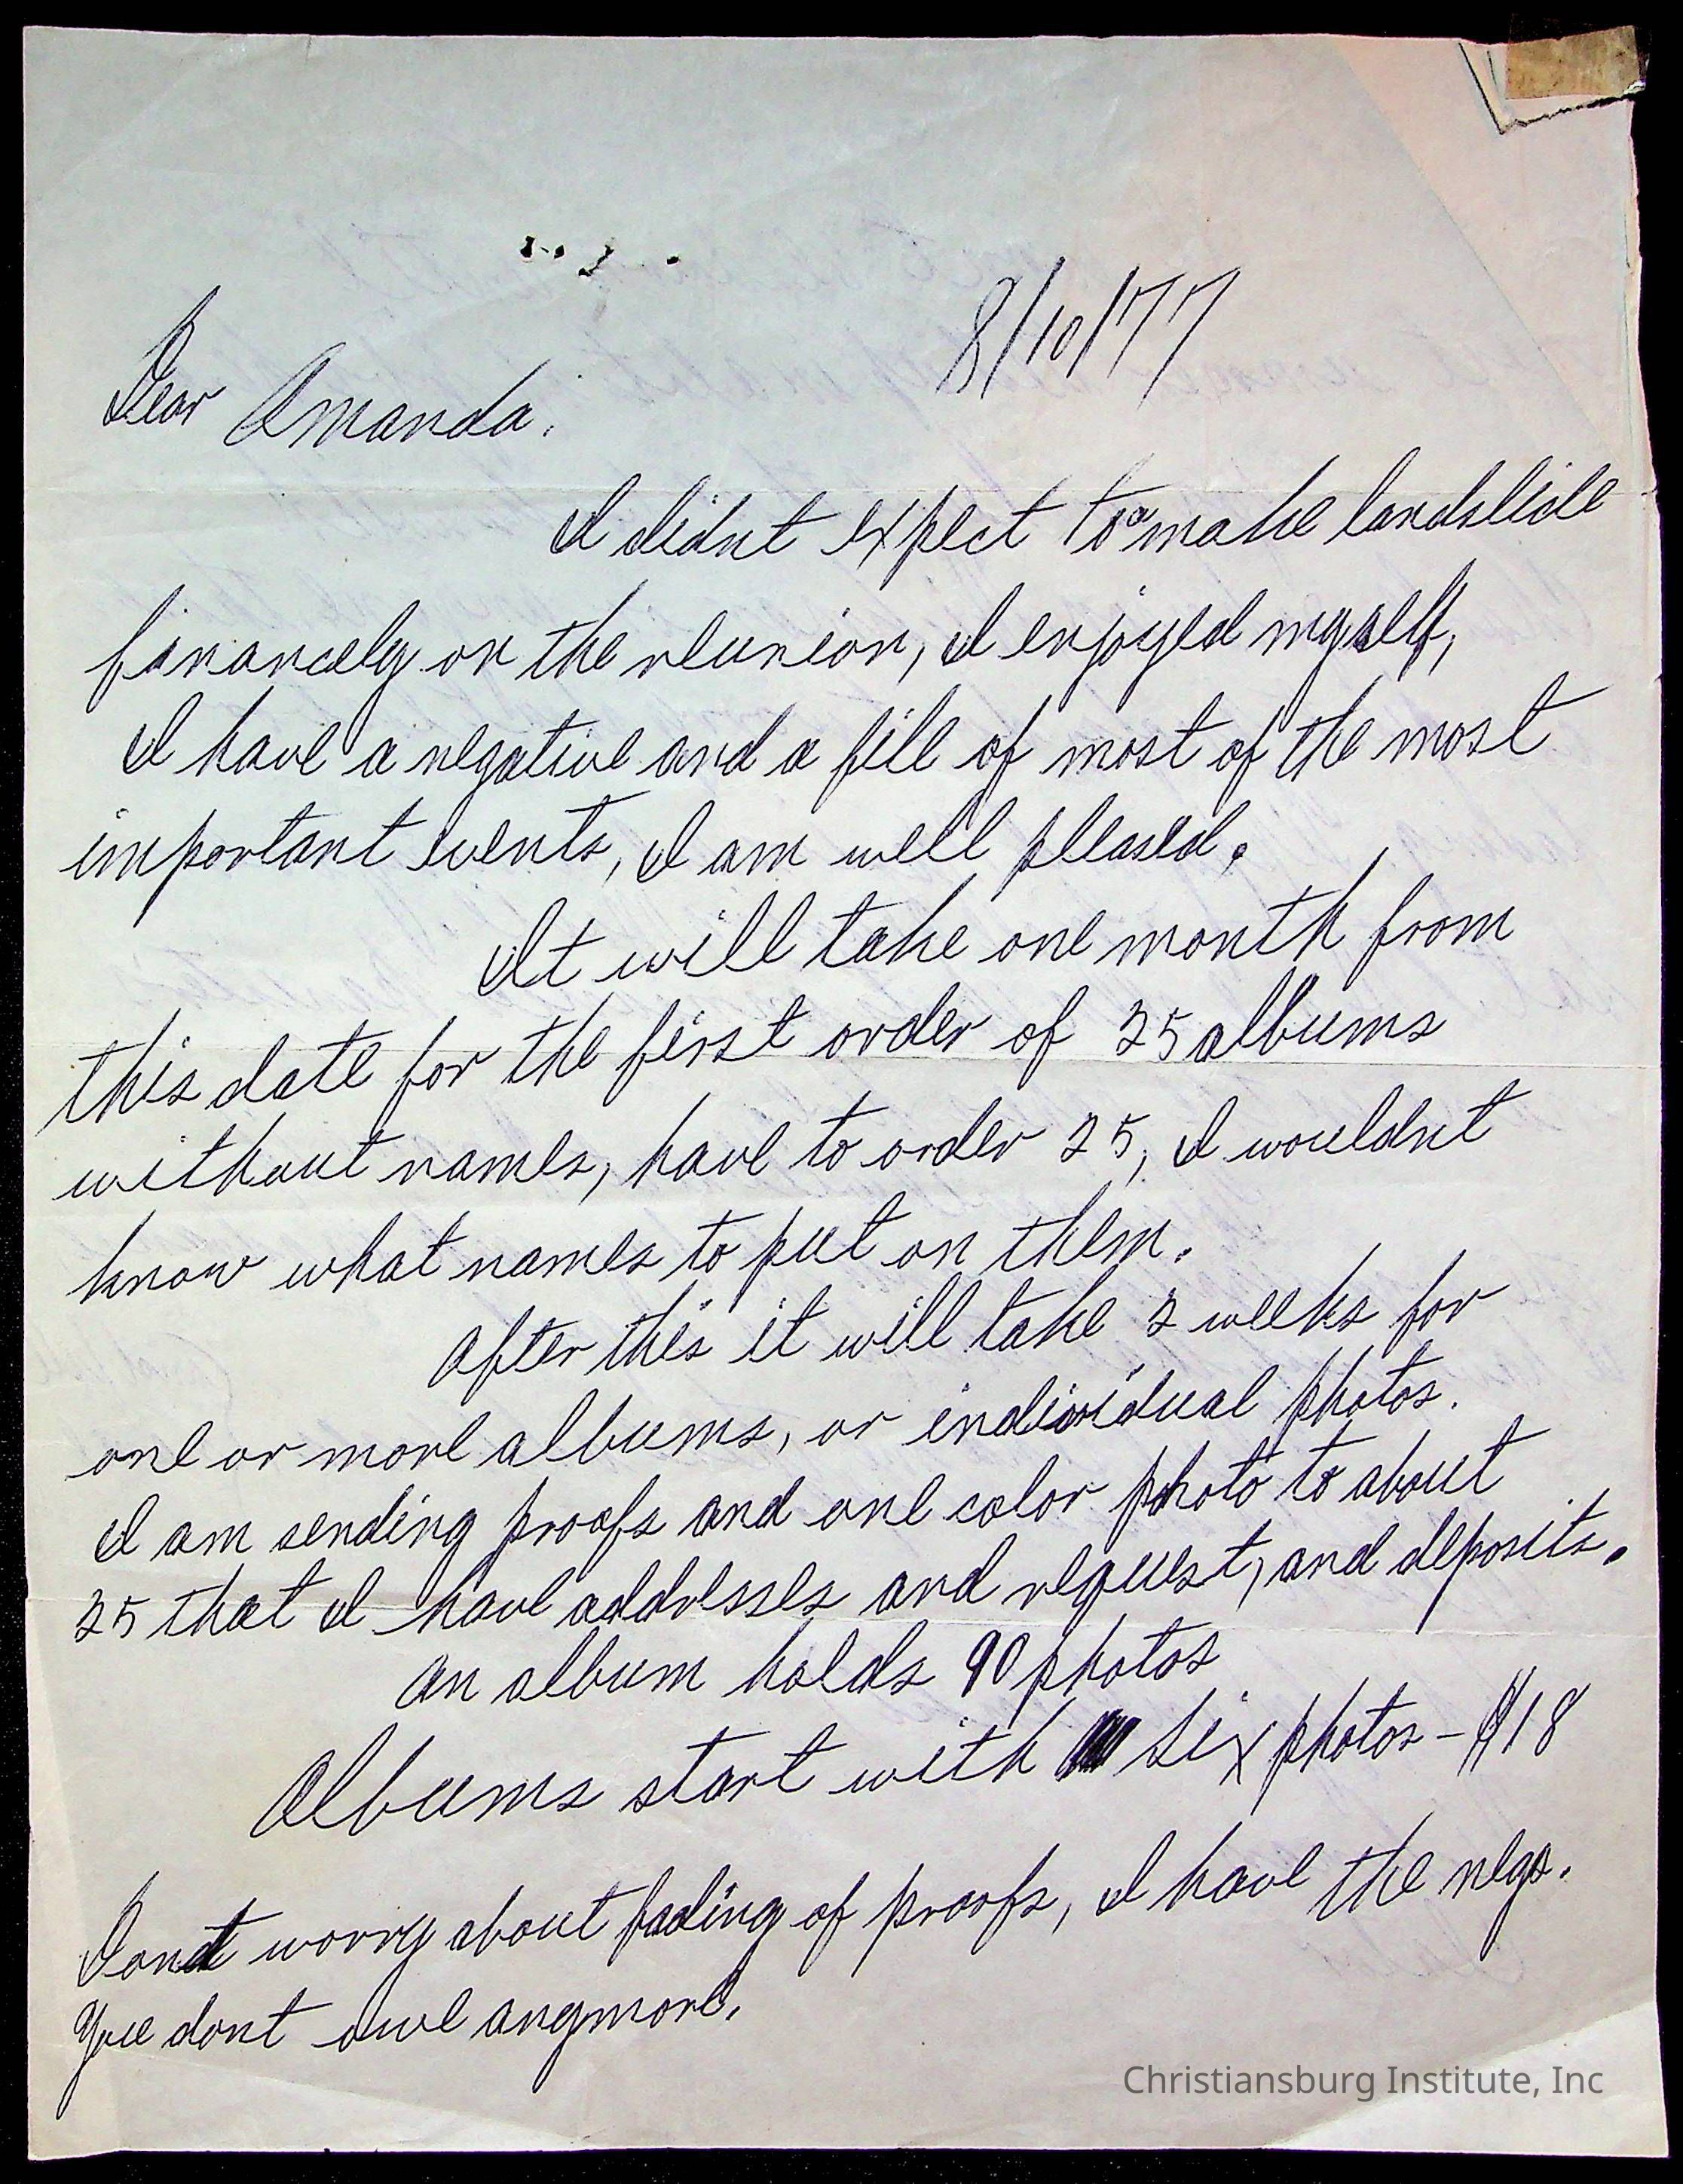 8/10/77
Dear Amanda.
I didnt expect to a make landslide
financely on the reunion, I enjoyed myself,
I have a negative and a file of most of the most
important events, I am well pleased.
It will take one month from
this date for the first order of 25 albums
without names, have to order 25, I wouldnt
know what names to put on them.
After this it will take 2 weeks for
one or more albums, or individual photos.
I am sending proofs and one color photo to about
25 that I have addresses and request, and deposits.
An album holds 90 photos
Albums start with six photos - $18
Dont worry about fading of proofs, I have the negs.
You dont owe anymore.
Christiansburg Institute, Inc